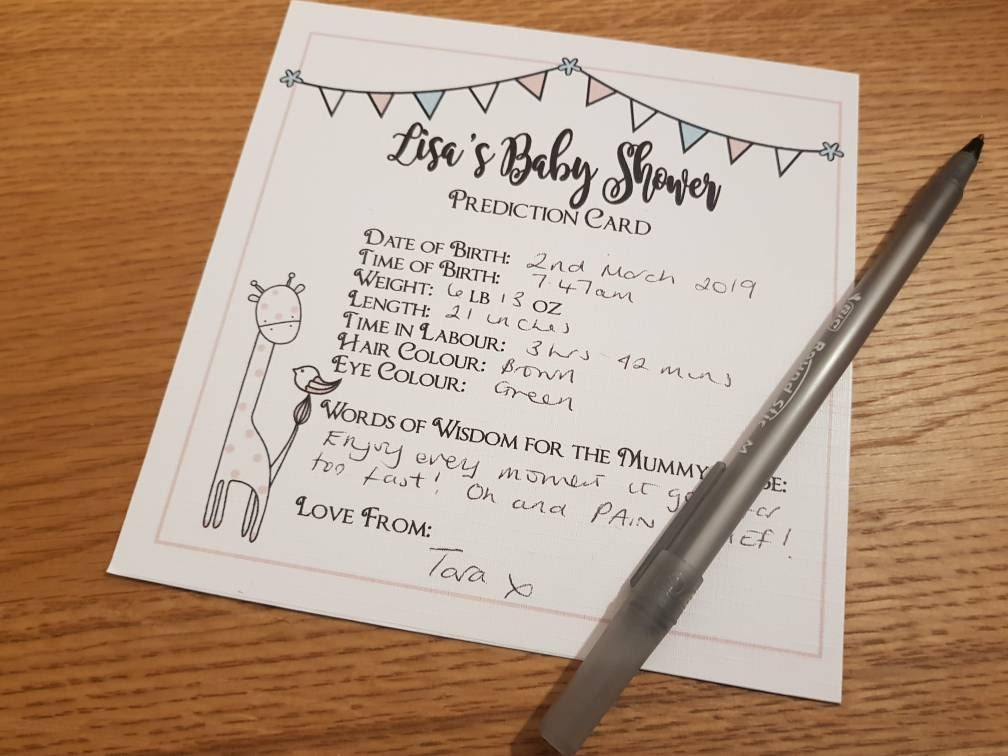 Lisa's Baby Shower
PREDICTION CARD
DATE OF BIRTH: 2nd March 2019
TIME OF BIRTH: 7.47am
WEIGHT: 6 LB 13 OZ
LENGTH: 21 inches
TIME IN LABOUR: 3hrs 42 mins
HAIR COLOUR: Brown
EYE COLOUR: Green
WORDS OF WISDOM FOR THE MUMMY
Enjoy every moment it
too fast! Oh and PAIN
LOVE FROM:
Tara x
BIC Round Stic M